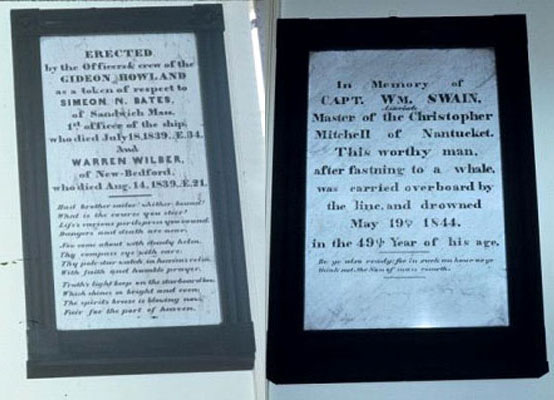 ERECTED
by the Officers & crew of the
GIDEON HOWLAND
as a token of respect to
SIMEON N. BATES,
of Sandwich Mass.
1st officer of the ship,
who died July 18, 1839. Æ. 34.
And
WARREN WILBER,
of New-Bedford,
who died Aug. 14, 1839. Æ. 21.
Hail brother sailor! whither bound?
What is the course you steer?
Life's various perils press you round
Dangers and death are near.
Thy compass eye with care.
With faith and humble prayer.
Truth's light keep on the starboard bow
Which shines so bright and even;
The spirits breeze is blowing now,
Fair for the port of heaven.
In Memory of
CAPT. WM. SWAIN,
Associate
Master of the Christopher
Mitchell of Nantucket.
This worthy man,
after fastning to a whale,
was carried overboard by
the line, and drowned
May 19th 1844.
in the 49th Year of his age.
Be ye also ready: for in such an hour as ye
think not, the Son of man cometh.